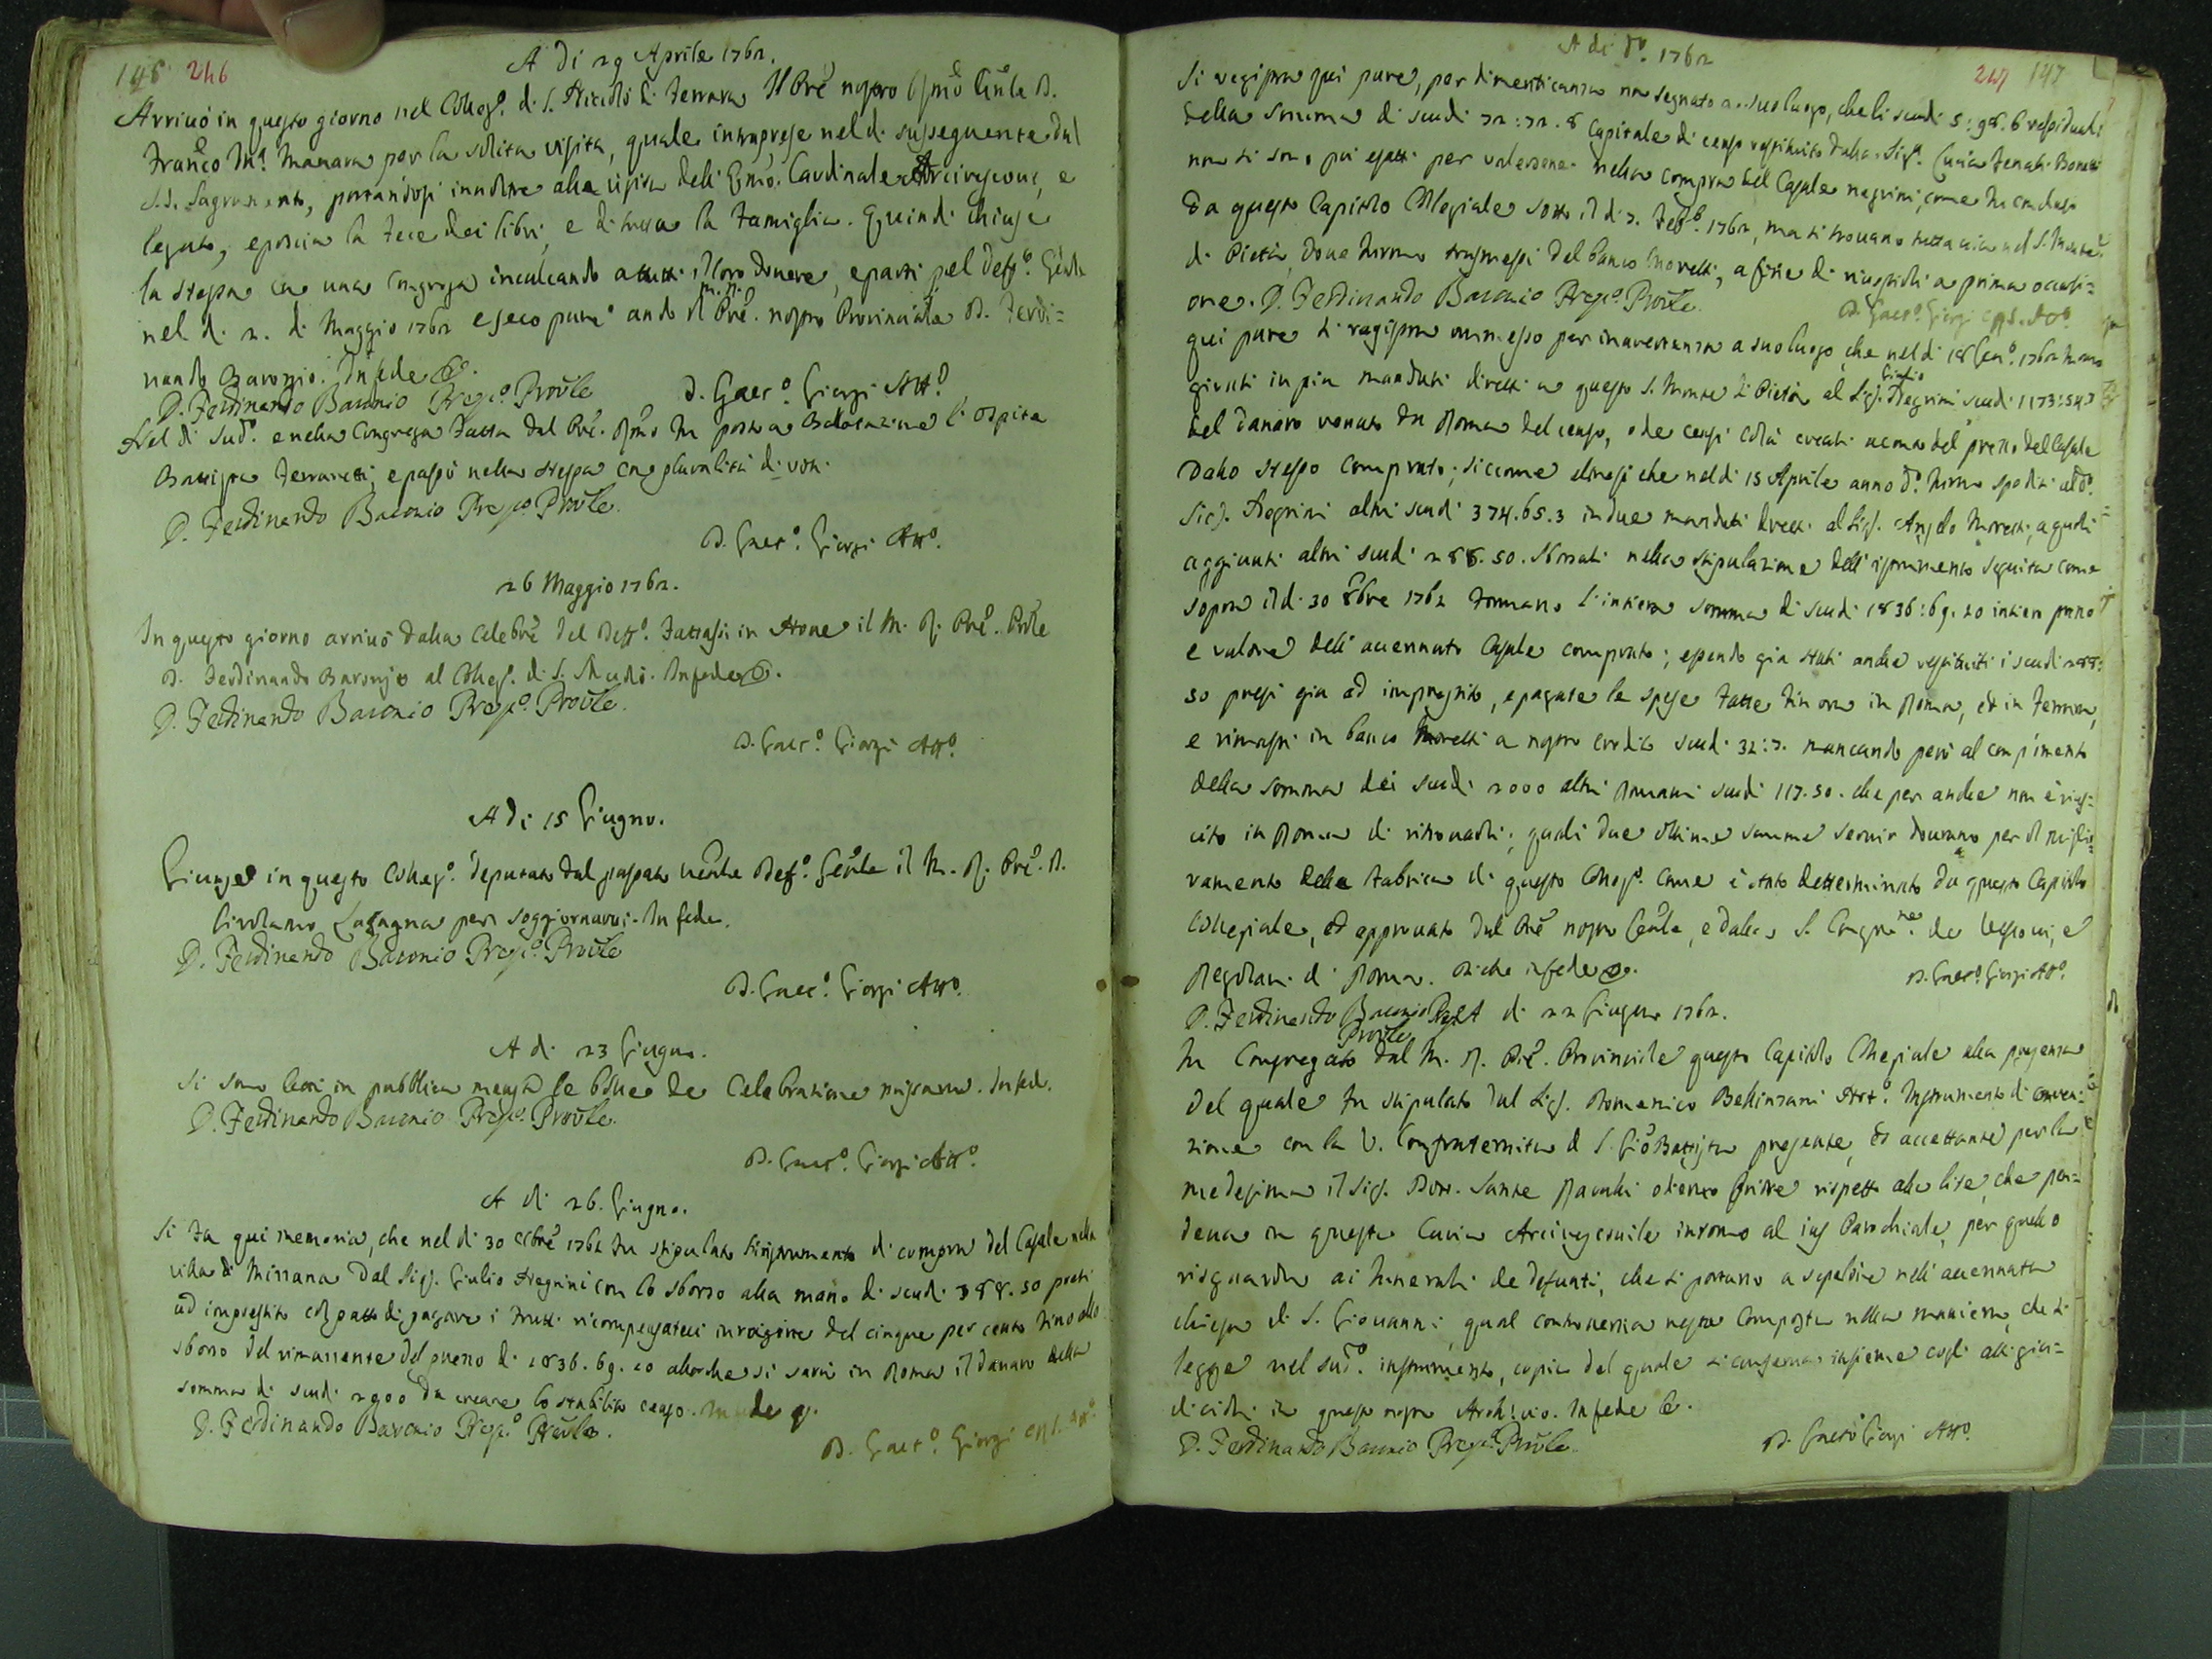 146 246
A di 29 Aprile 1762.
Arrivò in questo giorno nel Colleg.º di S. Nicolò di Ferrara Il Prê nostro Rmô Gñle D.
Franco M.ª Manara per la solita visita, quale intraprese nel dì susseguente dal
S.S. Sagramento, portandosi innoltre alla visita dell' Emô. Cardinale Arcivescovo, e
legato, e poscia la fece dei libri, e di tutta la famiglia. Quindi chiuse
la stessa con una Congrega inculcando a tutti il loro dovere, e partì pel Deff.º Gñle
nel dì 2. di Maggio 1762 e seco pure andò il M. R. Prê. nostro Provinciale D. Ferdi=
nando Baronio. In fede &.
D. Ferdinando Baronio Prep.º Provle
D. Gaet.º Giorgi Att.º
Nel dì sud.º e nella Congrega fatta dal Prê. Rmô fu posto a Ballotazione l'Ospite
Battista Ferraretti, e passò nella stessa con pluralità di voti.
D. Ferdinando Baronio Prep.º Provle.
D. Gaet.º Giorgi Att.º
26 Maggio 1762.
In questo giorno arrivò dalla Celebrê del Deff.º fattasi in il M. R. Prê. Prôle
D. Ferdinando Baronio al Colleg.º di S. Nicolò. In fede &.
D. Ferdinando Baronio Prep.º Provle.
D. Gaet.º Giorgi Att.º
A di 15 Giugno.
Giunse in questo Colleg.º deputato dal passato Vente Def.º Gêñle il M. R. Prê. D.
Girolamo Lasagna per soggiornarvi. In fede.
D. Ferdinando Baronio Prep.º Provle
D. Gaet.º Giorgi Att.º
A di 23 Giugno.
Si sono letti in pubblica mensa le bolle de Celebratione missarum. In fede.
D. Ferdinando Baronio Prep.º Provle.
D. Gaet.º Giorgi Att.º
A di 26. Giugno.
Si fa qui memoria, che nel dì 30 8bre 1761 fu stipulato l'instrumento di compra del Casale nella
villa di Missana dal Sig. Giulio Negrini con lo sborso alla mano di scudi 288.50 presi
ad imprestito col patto di pagare i frutti ricompensativi in ragione del cinque per cento fino allo
sborso del rimanente del prezzo di 1836.69.20 allorché si sarà in Roma il danaro della
somma di scudi 2900 da creare lo stabilito censo. In fede &.
D. Ferdinando Baronio Prep.º Provle.
D. Gaet.º Giorgi Att.º
A di dº. 1762
247 147
Si registra qui pure, per dimenticanza non segnato a suo luogo, che li scudi 5:98.6 residuali
della somma di scudi 72:72.8 Capitale di censo restituito dalla Sig.ª Bonetti
non si sono poi esatti per valersene nella compra del Casale Negrini, come fu concluso
da questo Capitolo Collegiale sotto il dì 7. Feb.º 1762, ma si trovano tuttavia nel S. Monte
di Pietà, dove furono trasmessi del banco Moretti, a fine di riaverli a prima occasi=
one. D. Ferdinando Baronio Prep.º Provle.
D. Gaet.º Giorgi Att.º
qui pure si registra ommesso per inavertenza a suo luogo, che nel dì 18 Gen.º 1762 furono
girati in più mandati diretti a questo S. Monte di Pietà al Sig. Giulio Negrini scudi 1173:54.7
del danaro venuto da Roma del censo, o de censi colà creati a conto del prezzo del Casale
dallo stesso comprato; siccome altresì che nel dì 15 Aprile anno dº. furono spediti al dº.
Sig. Negrini altri scudi 374.65.3 in due mandati diretti al Sig. Angelo Moretti, a quali
aggiunti altri scudi 288.50. sborsati nella stipulazione dell' istrumento seguita come
sopra il dì 30 8bre 1761 formano l'intiera somma di scudi 1836:69.20 intiero prezzo
e valore dell' accennato Casale comprato; essendo già stati anche restituiti i scudi 288:
50 presi già ad imprestito, e pagate le spese fatte fin ora in Roma, ed in Ferrara,
e rimasti in banco Moretti a nostro credito scudi 32:7. mancando però al compimento
della somma dei scudi 2000 altri Romani scudi 117.50. che per anche non è rius=
cito in Roma di ritrovarli; quali due ultime somme servir dovranno per il miglio=
ramento della fabrica di questo Colleg.º come è stato determinato da questo Capitolo
Collegiale, ed approvato dal Prê nostro Gêñle, e dalla S. Congrne de Vescovi, e
Regolari di Roma. Di che in fede &.
D. Gaet.º Giorgi Att.º
D. Ferdinando Baronio Prep.º Provle
A di 22 Giugno 1762.
Fu Congregato dal M. R. Prê. Provinciale questo Capitolo Collegiale alla presenza
del quale fu stipulato dal Sig. Domenico Bellinzani Not.º Instrumento di conven=
zione con la V. Confraternita di S. Giô Battista presente, ed accettante per la
medesima il Sig. Dott. Sante rispetto alla lite, che pen=
deva in questa Curia Arcivescovile intorno al ius Parochiale, per quello
risguarda ai funerali de defunti, che si portano a sepelire nell' accennata
chiesa di S. Giovanni; qual controversia resta composta nella maniera, che si
legge nel sudº. instrumento, copia del quale si conserva insieme cogli atti giu=
diciali in questo nostro Archivio. In fede &.
D. Ferdinando Baronio Prep.º Provle.
D. Gaetº Giorgi Att.º